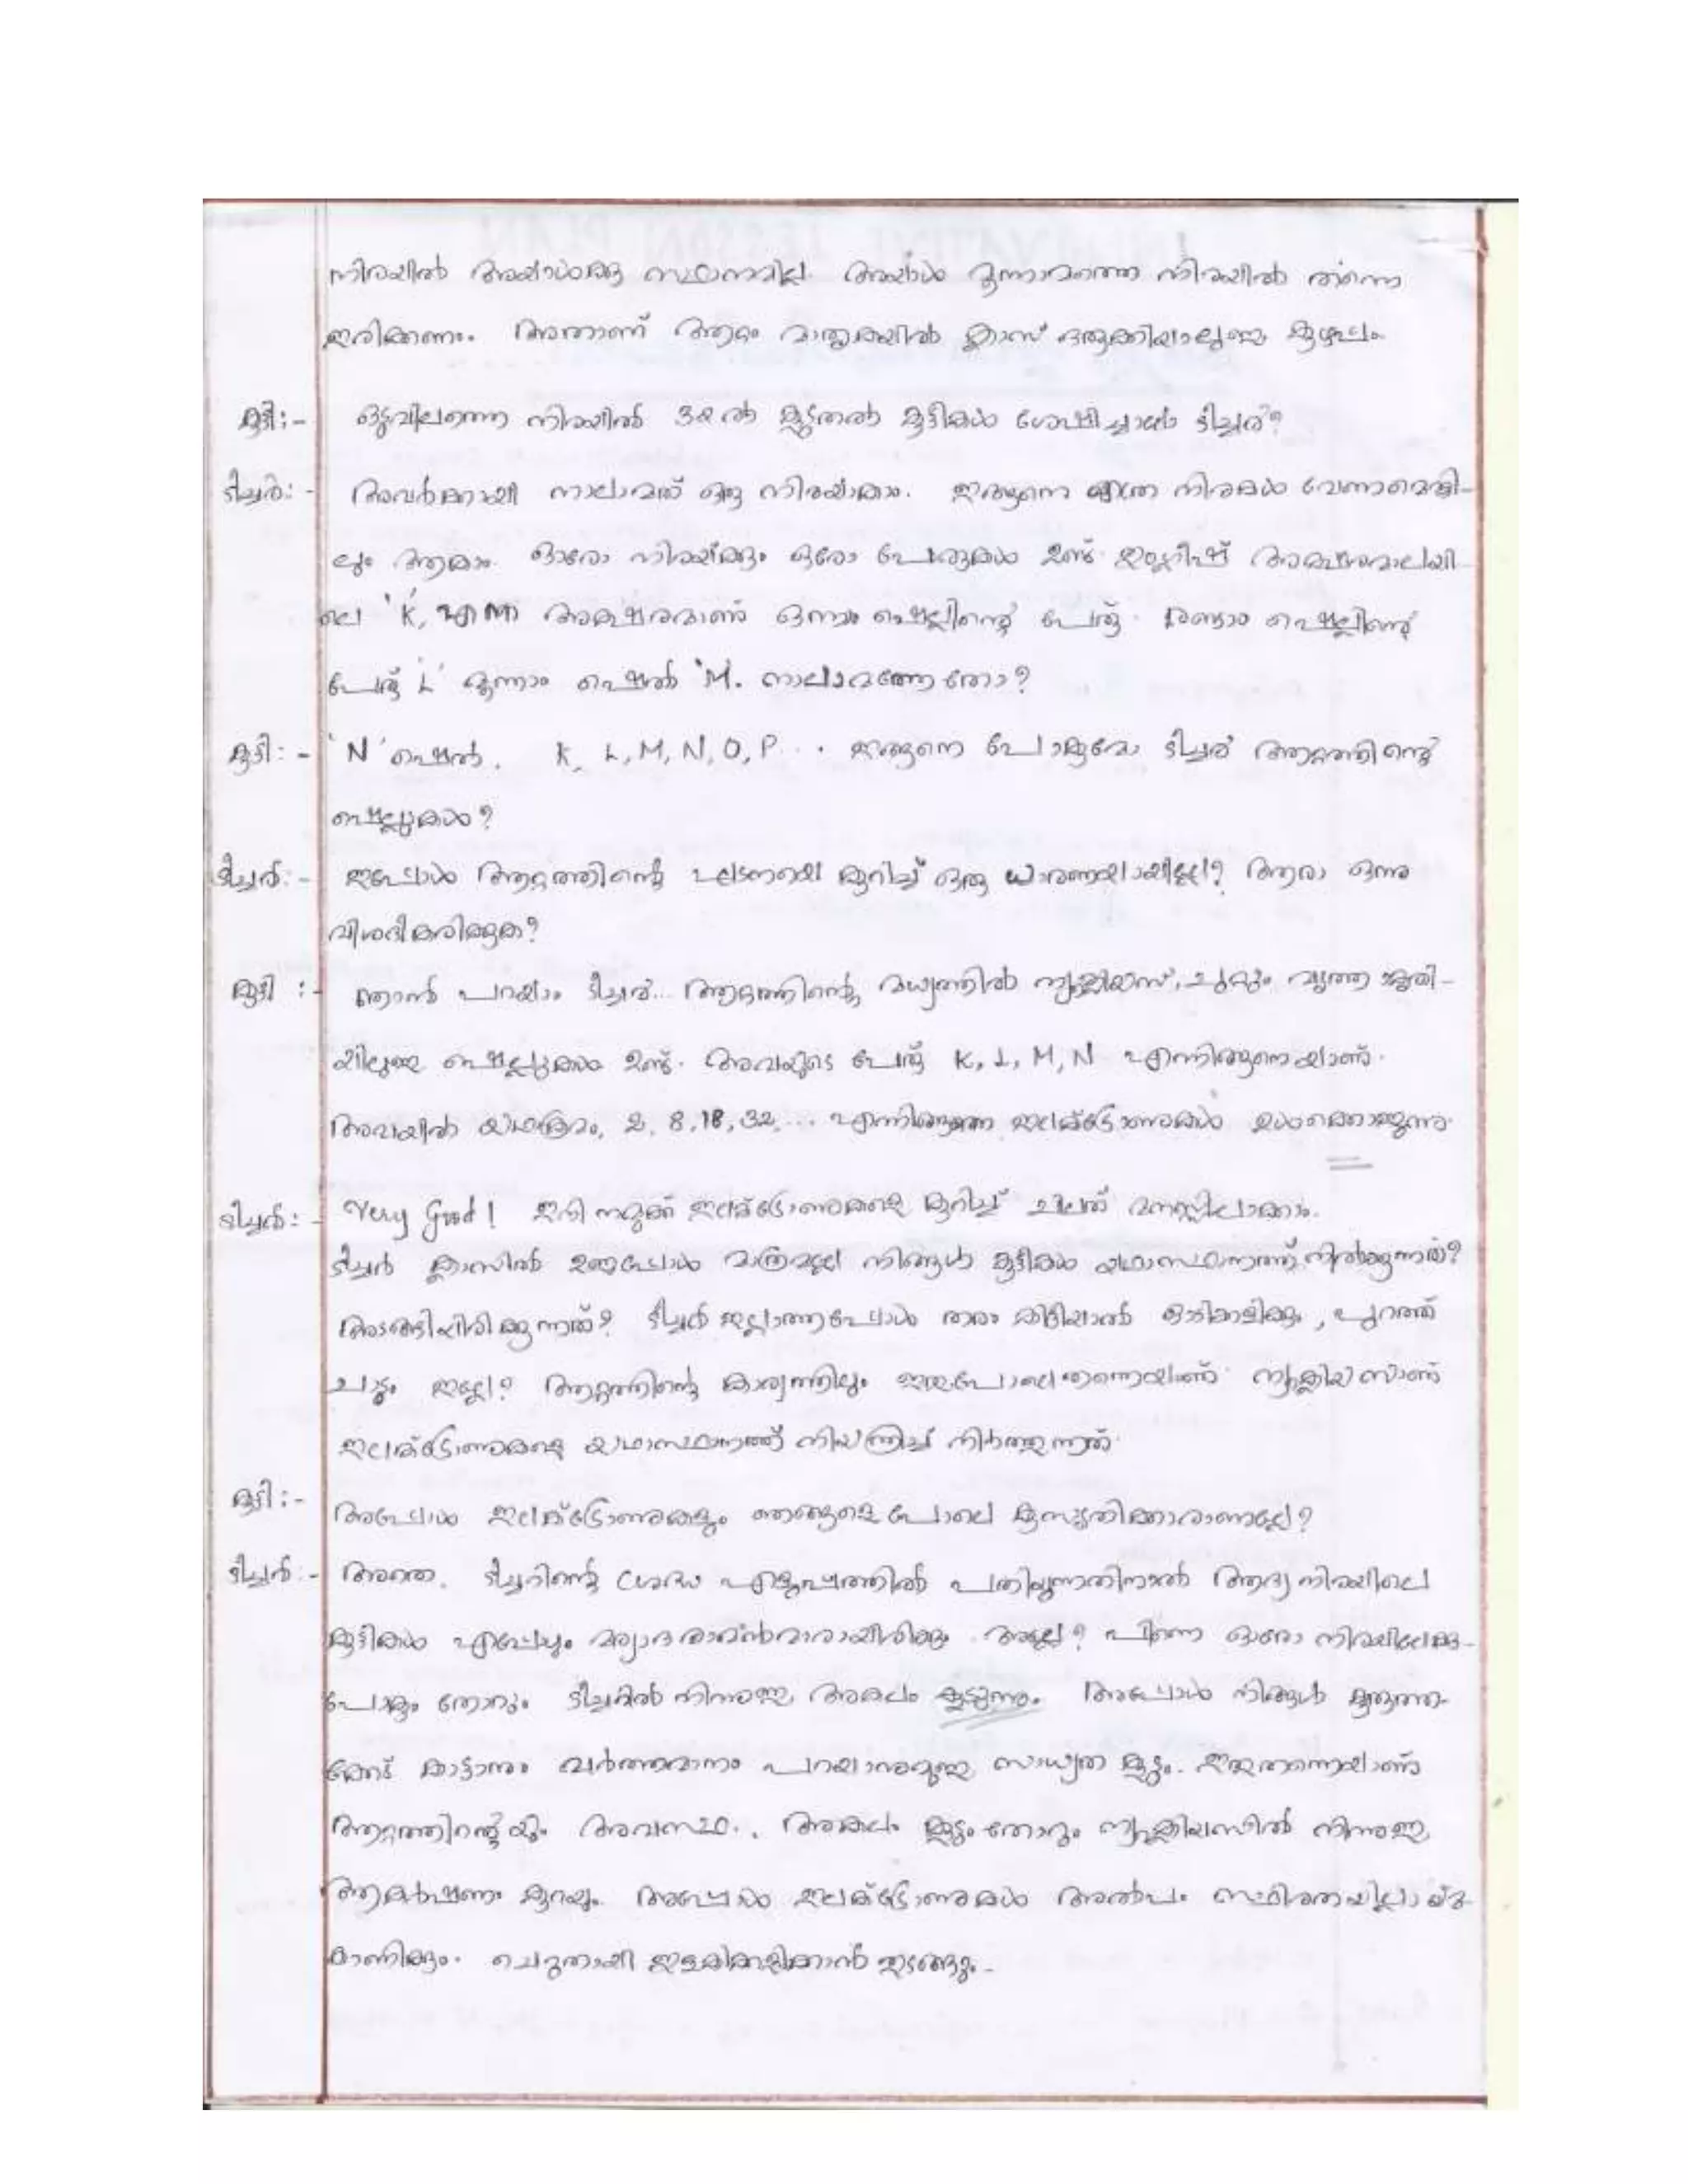 നിരയിൽ അയാൾക്കു സ്ഥാനമില്ല. അയാൾ മൂന്നാമത്തെ നിരയിൽ തന്നെ
ഇരിക്കണം. അതാണ് ആറ്റം മാതൃകയിൽ ക്ലാസ് ഒരുക്കിയാലുള്ള കുഴപ്പം.
കുട്ടി:- ഒടുവിലത്തെ നിരയിൽ 32ൽ കൂടുതൽ കുട്ടികൾ ശേഷിച്ചാലോ ടീച്ചർ?
ടീച്ചർ:- അവർക്കായി നാലാമത് ഒരു നിരയാകാം. ഇങ്ങനെ എത്ര നിരകൾ വേണമെങ്കി-
ലും ആകാം. ഓരോ നിരയ്ക്കും ഒരോ പേരുകൾ ഉണ്ട്. ഇംഗ്ലീഷ് അക്ഷരമാലയി
ലെ 'K, എന്ന അക്ഷരമാണ് ഒന്നാം ഷെല്ലിന്റെ പേര്. രണ്ടാം ഷെല്ലിന്റെ
പേര് 'L' മൂന്നാം ഷെൽ 'M. നാലാമത്തേതോ?
കുട്ടി:- 'N' ഷെൽ. K, L, M, N, O, P... ഇങ്ങനെ പോകുമോ ടീച്ചർ ആറ്റത്തിന്റെ
ഷെല്ലുകൾ?
ടീച്ചർ:- ഇപ്പോൾ ആറ്റത്തിന്റെ ഘടനയെ കുറിച്ച് ഒരു ധാരണയായില്ലേ? ആരാ ഒന്നു
വിശദീകരിക്കുക?
കുട്ടി:- ഞാൻ പറയാം ടീച്ചർ... ആറ്റത്തിന്റെ മധ്യത്തിൽ ന്യൂക്ലിയസ്, ചുറ്റും വൃത്താകൃതി-
യിലുള്ള ഷെല്ലുകൾ ഉണ്ട്. അവയുടെ പേര് K, L, M, N എന്നിങ്ങനെയാണ്.
അവയിൽ യഥാക്രമം, 2, 8, 18, 32, ... എന്നിങ്ങനെ ഇലക്ട്രോണുകൾ ഉൾക്കൊള്ളുന്നു.
ടീച്ചർ:- Very Good! ഇനി നമുക്ക് ഇലക്ട്രോണുകളെ കുറിച്ച് ചിലത് മനസ്സിലാക്കാം.
ടീച്ചർ ക്ലാസിൽ ഉള്ളപ്പോൾ മാത്രമല്ലേ നിങ്ങൾ കുട്ടികൾ യഥാസ്ഥാനത്ത് നിൽക്കുന്നത്?
അടങ്ങിയിരിക്കുന്നത്? ടീച്ചർ ഇല്ലാത്തപ്പോൾ തരം കിട്ടിയാൽ ഓടികളിക്കും, പുറത്ത്
ചാടും ഇല്ലേ? ആറ്റത്തിന്റെ കാര്യത്തിലും ഇതുപോലെതന്നെയാണ്. ന്യൂക്ലിയസാണ്
ഇലക്ട്രോണുകളെ യഥാസ്ഥാനത്ത് നിയന്ത്രിച്ച് നിർത്തുന്നത്.
കുട്ടി:- അപ്പോൾ ഇലക്ട്രോണുകളും ഞങ്ങളെ പോലെ കുസൃതിക്കാരാണല്ലേ?
ടീച്ചർ:- അതെ. ടീച്ചറിന്റെ ശ്രദ്ധ എളുപ്പത്തിൽ പതിയുന്നതിനാൽ ആദ്യ നിരയിലെ
കുട്ടികൾ എപ്പോഴും മര്യാദരാമൻമാരായിരിക്കും അല്ലേ? പിന്നെ ഓരോ നിരയിലേക്കു-
പോകും തോറും ടീച്ചറിൽ നിന്നുള്ള അകലം കൂടുന്നു. അപ്പോൾ നിങ്ങൾ കുരുത്ത-
ക്കേട് കാട്ടാനും വർത്തമാനം പറയാനുമുള്ള സാധ്യത കൂടും. ഇതുതന്നെയാണ്
ആറ്റത്തിന്റെയും അവസ്ഥ.. അകലം കൂടും തോറും ന്യൂക്ലിയസിൽ നിന്നുള്ള
ആകർഷണം കുറയും. അപ്പോൾ ഇലക്ട്രോണുകൾ അൽപം സ്ഥിരതയില്ലായ്മ
കാണിക്കും. ചെറുതായി ഇളകിക്കളിക്കാൻ തുടങ്ങും.